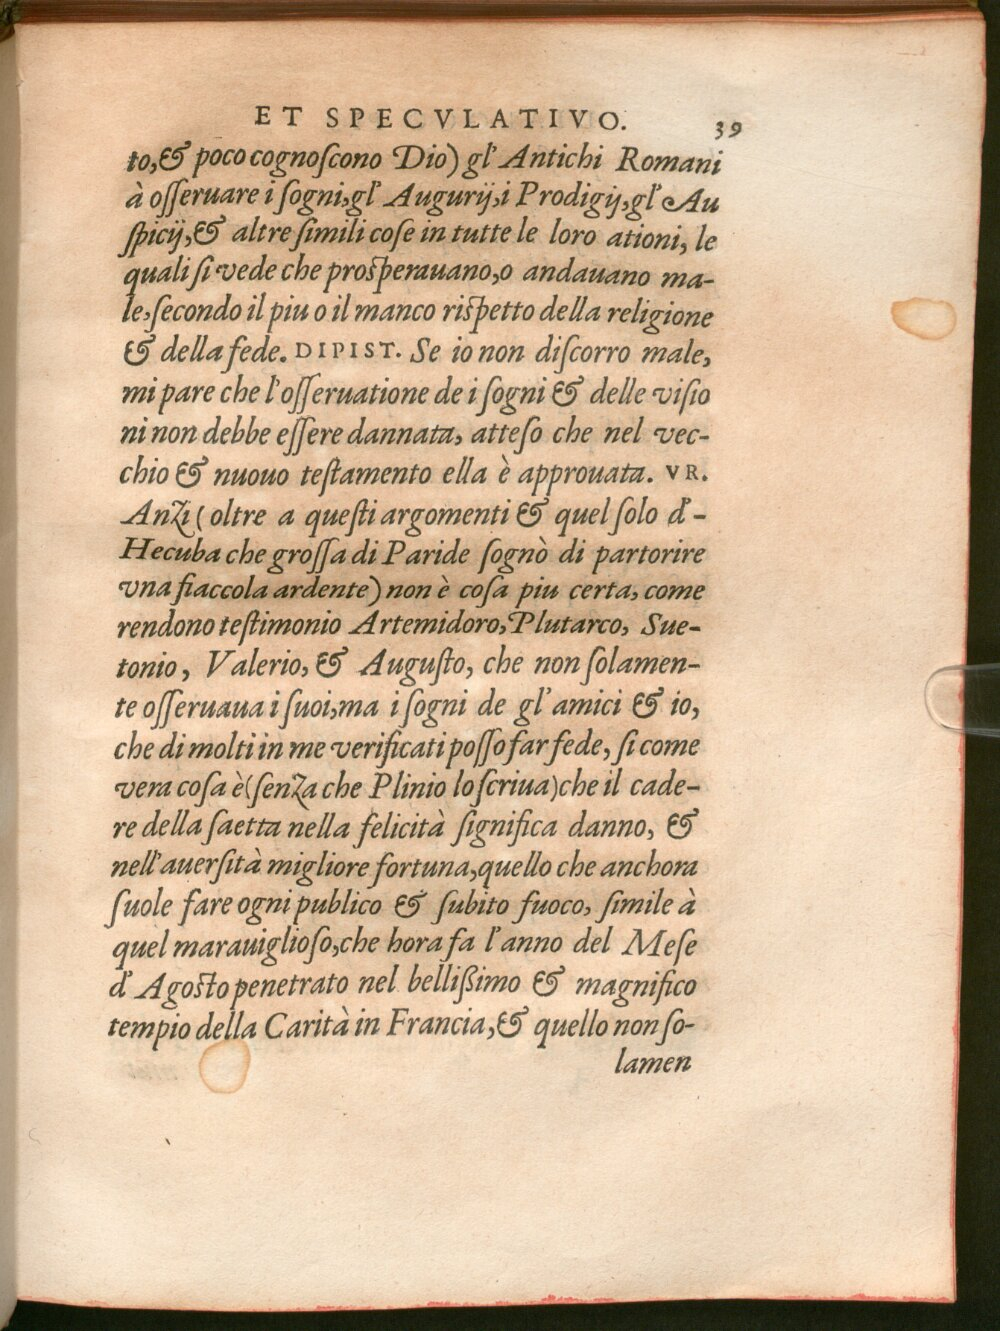 ET SPECVLATIVO.
39
to,& poco cognoſcono Dio) gl' Antichi Romani
à oſſeruare i ſogni,gl' Augurij,i Prodigij,gl' Au
ſpicij,& altre ſimili coſe in tutte le loro ationi, le
quali ſi vede che proſperauano,o andauano ma-
le,ſecondo il piu o il manco riſpetto della religione
& della fede. DIPIST. Se io non diſcorro male,
mi pare che l'oſſeruatione de i ſogni & delle viſio
ni non debbe eſſere dannata, atteſo che nel vec-
chio & nuouo teſtamento ella è approuata. VR.
Anzi ( oltre a queſti argomenti & quel ſolo d'-
Hecuba che groſſa di Paride ſognò di partorire
vna fiaccola ardente) non è coſa piu certa, come
rendono teſtimonio Artemidoro,Plutarco, Sue-
tonio, Valerio, & Auguſto, che non ſolamen-
te oſſeruaua i ſuoi,ma i ſogni de gl'amici & io,
che di molti in me verificati poſſo far fede, ſi come
vera coſa è(ſenza che Plinio lo ſcriua)che il cade-
re della ſaetta nella felicità ſignifica danno, &
nell'auerſità migliore fortuna,quello che anchora
ſuole fare ogni publico & ſubito fuoco, ſimile à
quel marauiglioſo,che hora fa l'anno del Meſe
d' Agoſto penetrato nel belliſſimo & magnifico
tempio della Carità in Francia,& quello non ſo-
lamen